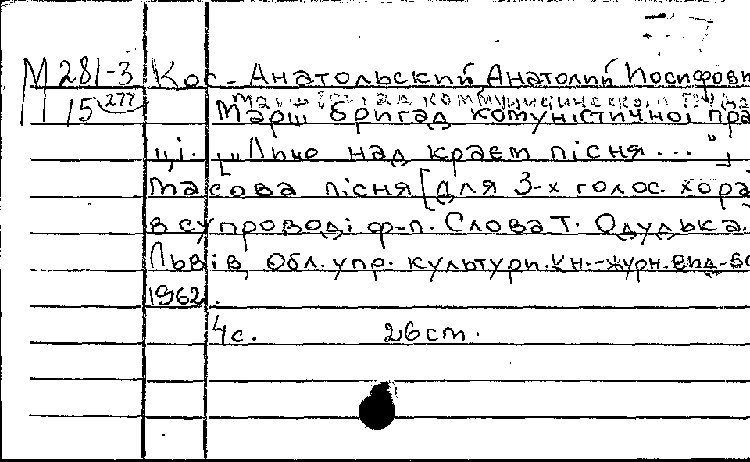 М 281-3 Кос-Анатольский Анатолий Иосифови
15 277 Марш бригад коммунистического
Марш бригад комуністичної пра
ці. [„Лине над краєм пісня..."]
Масова пісня [для 3-х голос. хора
в супроводі ф-п. Слова Т. Одудька.
Львів, Обл. упр. культури. Кн.-журн. вид-во
1962.
4с. 26 cm.